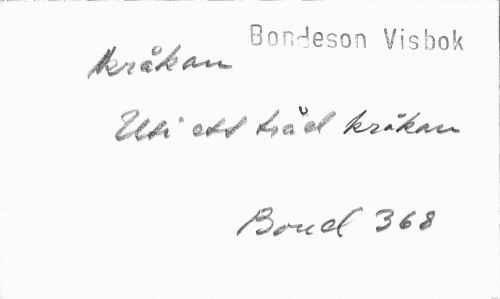 Bondeson Visbok
Kråkan
Uti ett träd kråkan
Bond 368